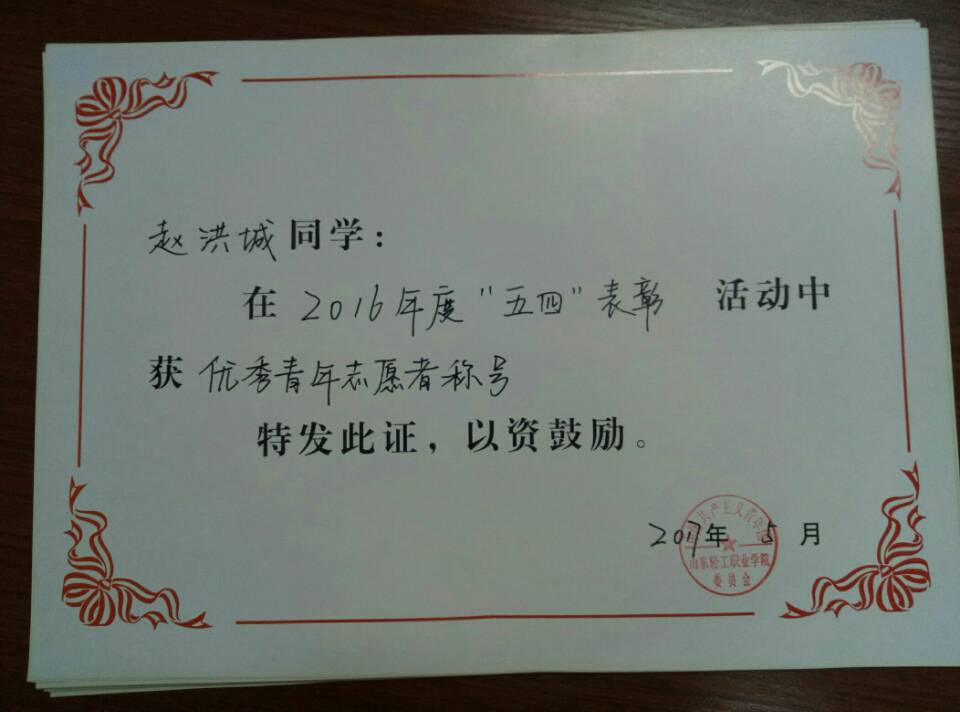 赵洪城同学：
在 2016年度"五四"表彰 活动中
获 优秀青年志愿者称号
特发此证，以资鼓励。
2017年 5 月
共产主义青年团
山东轻工职业学院
委员会